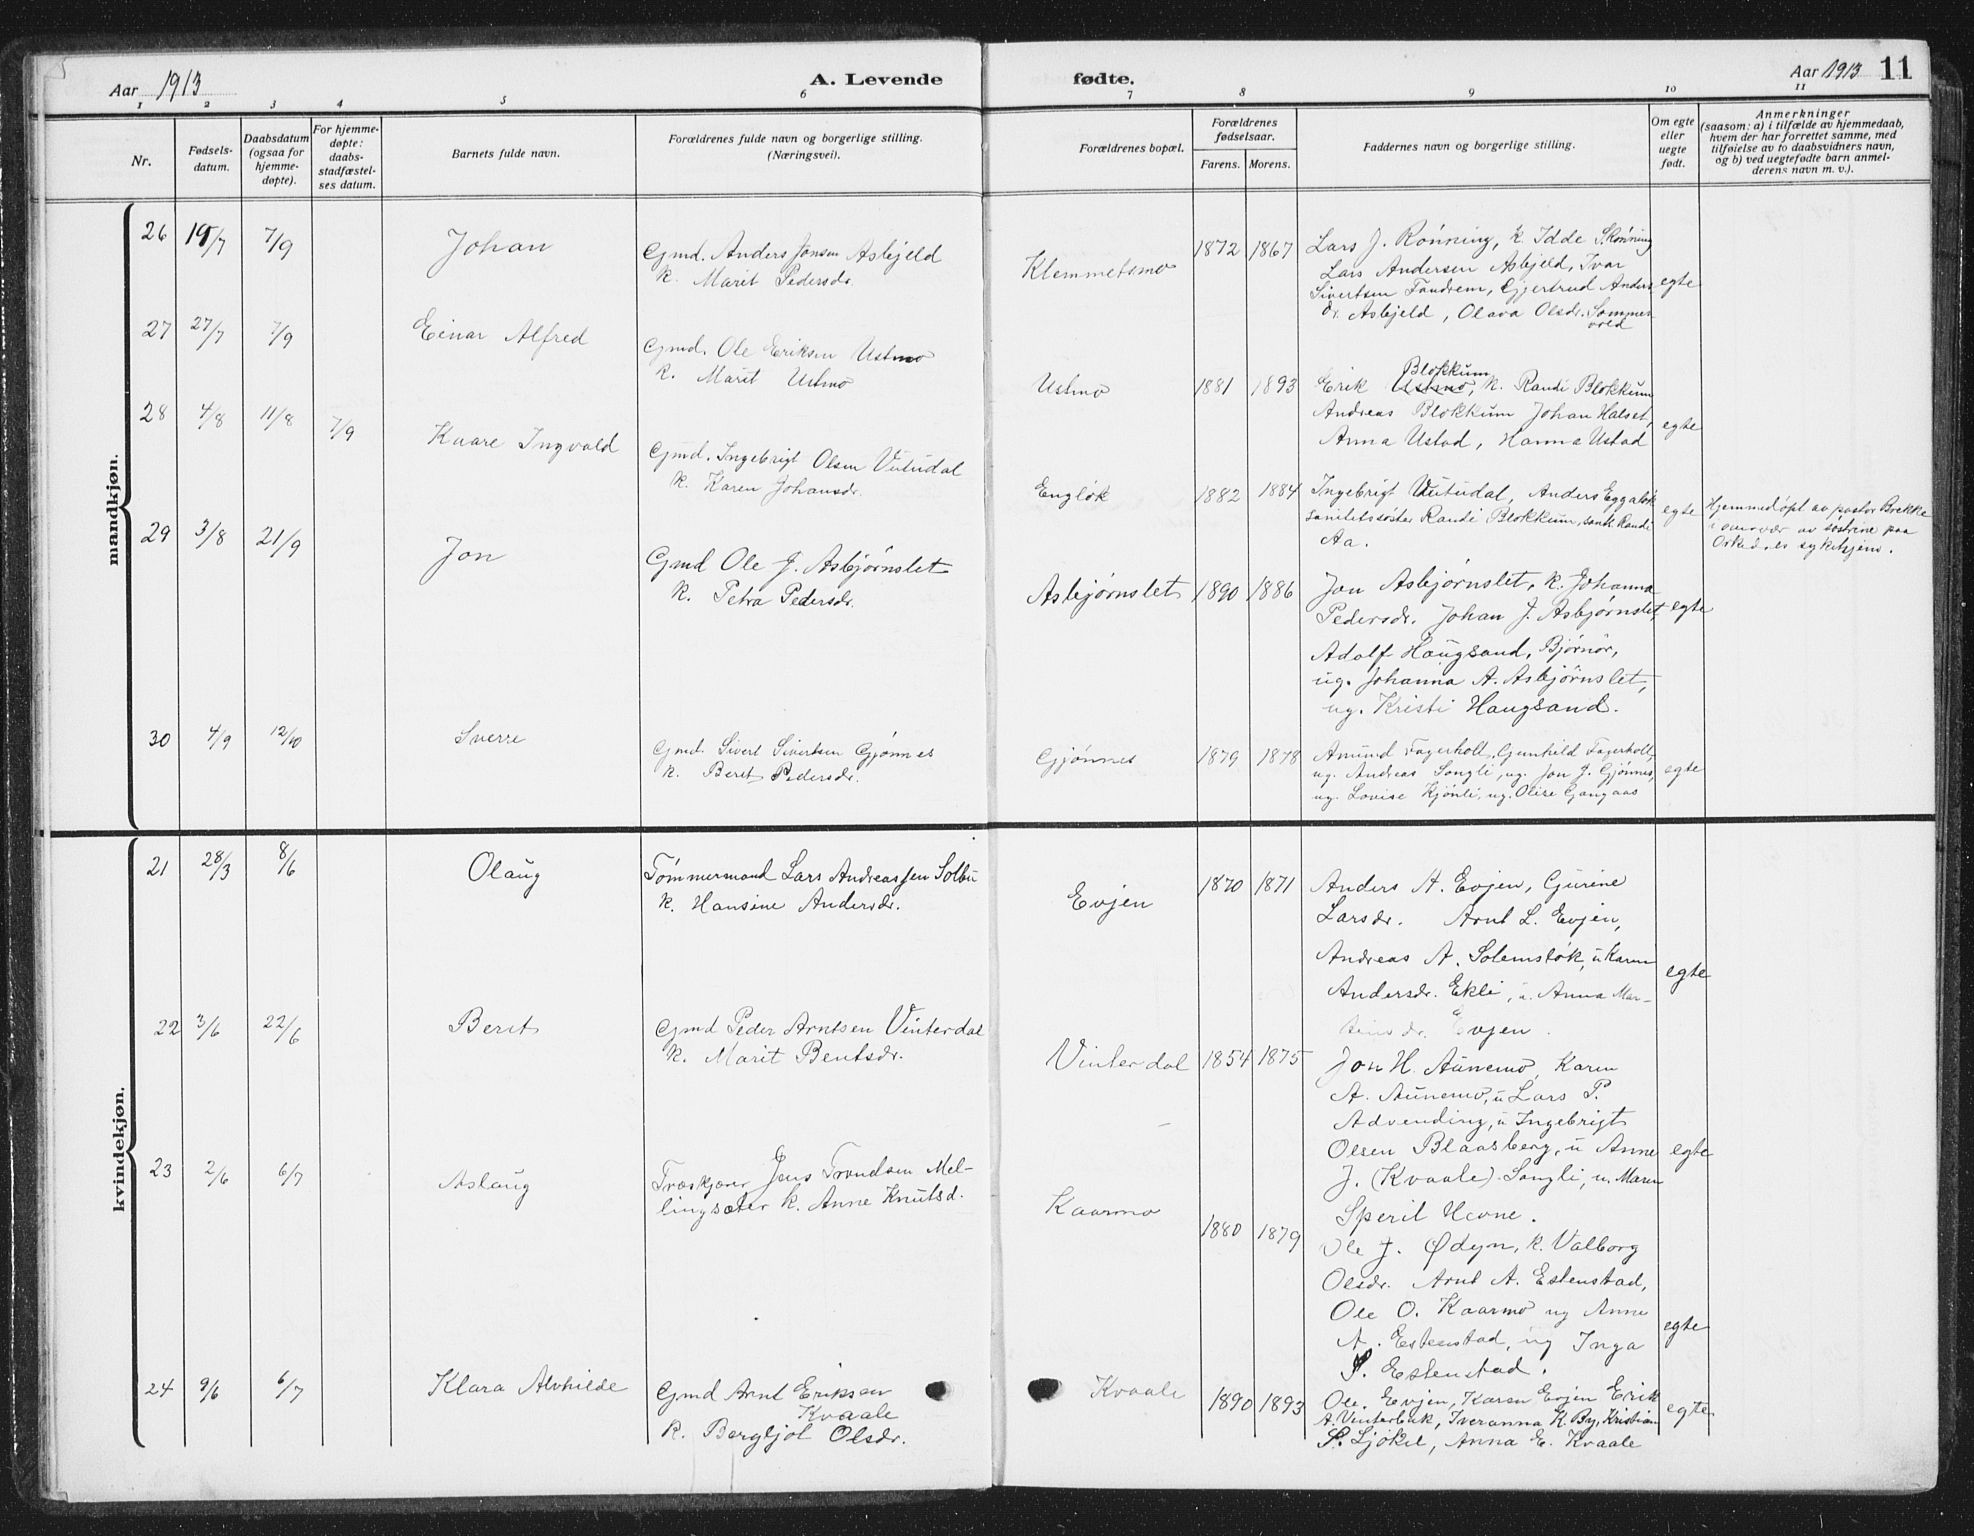 Aar 1913
A. Levende
fødte.
Aar 1913 11
1 2 3 4 5 6 7 8 9 10 11
Nr.
Fødsels-
datum.
Daabsdatum
(ogsaa for
hjemme-
døpte).
For hjemme-
døpte:
daabs-
stadfæstel-
ses datum.
Barnets fulde navn.
Forældrenes fulde navn og borgerlige stilling.
(Næringsvei).
Forældrenes bopæl.
Forældrenes
fødselsaar.
Farens. Morens.
Faddernes navn og borgerlige stilling.
Om egte
eller
uegte
født.
Anmerkninger
(saasom: a) i tilfælde av hjemmedaab,
hvem der har forrettet samme, med
tilføielse av to daabsvidners navn,
og b) ved uegtefødte barn anmel-
derens navn m. v.).
mandkjøn.
26 19/7 7/9 Johan
Gmd. Anders Jonsen Asbjeld
k. Marit Pedersdr.
Klemmetsmo 1872 1867
Lars J. Rønning, k. Idde S. Rønning
Lars Andersen Asbjeld, Ivar
Sivertsen Fandrem, Gjertrud Anders
dr. Asbjeld, Olava Olsdr. Sommer
vold
egte
27 27/7 7/9 Einar Alfred
Gmd. Ole Eriksen Ustmo
k. Marit Ustmo
Ustmo 1881 1893
Blokkum
Erik Ustmo, k. Randi Blokkum
Andreas Blokkum Johan Halset,
Anna Ustad, Hanna Ustad
egte
28 4/8 11/8 7/9 Kaare Ingvald
Gmd. Ingebrigt Olsen Vutudal
k. Karen Johansdr.
Engløk 1882 1884
Ingebrigt Vutudal, Anders Eggaløk
sanitetssøster Randi Blokkum, samt Randi
Aa.
egte
Hjemmedøpt av pastor Brekke
i overvær av søstrene paa
Orkedales sykehjem.
29 3/8 21/9 Jon
Gmd Ole J. Asbjørnslet
k. Petra Pedersdr.
Asbjørnslet 1890 1886
Jon Asbjørnslet, k. Johanna
Pedersdr. Johan J. Asbjørnslet,
Adolf Haugsand, Bjørnør,
ug. Johanna A. Asbjørnslet,
ug. Kristi Haugsand.
egte
30 4/9 12/10 Sverre
Gmd. Sivert Sivertsen Gjønnes
k. Beret Pedersdr.
Gjønnes 1879 1878
Amund Fagerholt, Gunhild Fagerholt,
ug. Andreas Songli, ug. Jon J. Gjønnes,
ug. Lovise Kjønli, ug. Olise Gangaas
egte
kvindekjøn.
21 28/3 8/6 Olaug
Tømmermand Lars Andreassen Solbu
k. Hansine Andersdr.
Evjen 1870 1871
Anders A. Evjen, Gurine
Larsdr. Arnt L. Evjen,
Andreas A. Solemsløk, u Karen
Andersdr. Ekli, u. Anna Mar-
tinsdr. Evjen.
egte
22 3/6 22/6 Berit
Gmd Peder Arntsen Vinterdal
k. Marit Bentsdr.
Vinterdal 1854 1875
Jon H. Aunemo, Karen
A. Aunemo, u Lars P.
Advending, u Ingebrigt
Olsen Blaasberg, u Anne
J. (Kvaale) Songli, u. Maren
Speril Hevne.
egte
23 2/6 6/7 Aslaug
Træskjærer Jens Trondsen Mel-
lingsæter k. Anne Knutsd.
Kaarmo
1880 1879
Ole J. Ødyn, k. Valborg
Olsdr. Arnt A. Estenstad,
Ole O. Kaarmo ug Anne
A. Estenstad, ug Inga
S. Estenstad.
egte
24 9/6 6/7 Klara Alvhilde
Gmd Arnt Eriksen
Kvaale
k. Bergljot Olsdr.
Kvaale 1890 1893
Ole. Evjen, Karen Evjen Erik
A. Vinterbak, Iveranna K. By, Kristian
S. Ljøkel, Anna E. Kvaale
egte